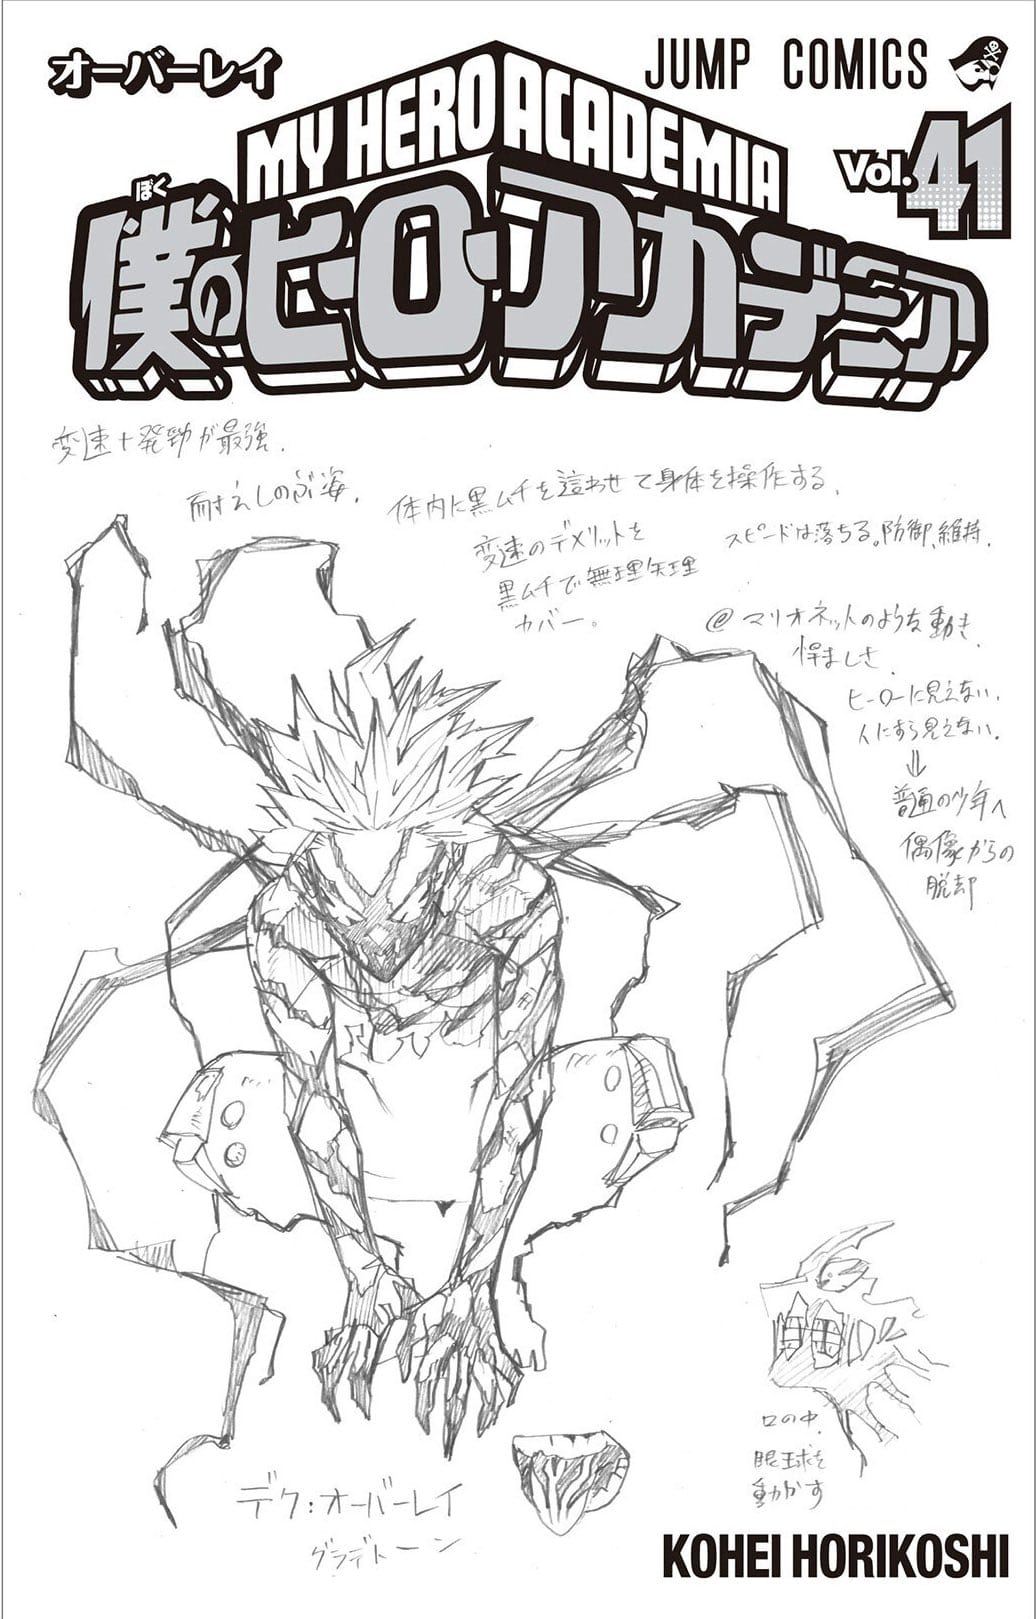 オーバーレイ
JUMP COMICS
MY HERO ACADEMIA
Vol.41
ぼく
僕のヒーローアカデミア
変速+発勁が最強.
耐えしのぶ姿.
体内に黒ムチを這わせて身体を操作する.
変速のデメリットを
黒ムチで無理矢理
カバー。
スピードは落ちる。防御、維持.
@マリオネットのような動き.
悍ましさ.
ヒーローに見えない.
人にすら見えない。
⇓
普通の少年へ
偶像からの
脱却
口の中.
眼球を
動かす
デク:オーバーレイ
グラデトーン
KOHEI HORIKOSHI